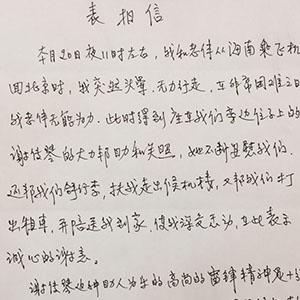 表扬信
本月20日夜11时左右,我和老伴从海南乘飞机
回北京时,我突然头晕无力行走,在外帝困难之时
我老伴无能为力.此时得到座在我们旁边位子上的
谢佳琴的大力帮助和关照,她不断安慰我们.
还帮我们拿行李,扶我走出候机楼,又帮我们打
出租车,并陪送我到家.使我深受感动,在此表示
诚心的谢意。
谢佳琴这种助人为乐的高尚的雷锋精神